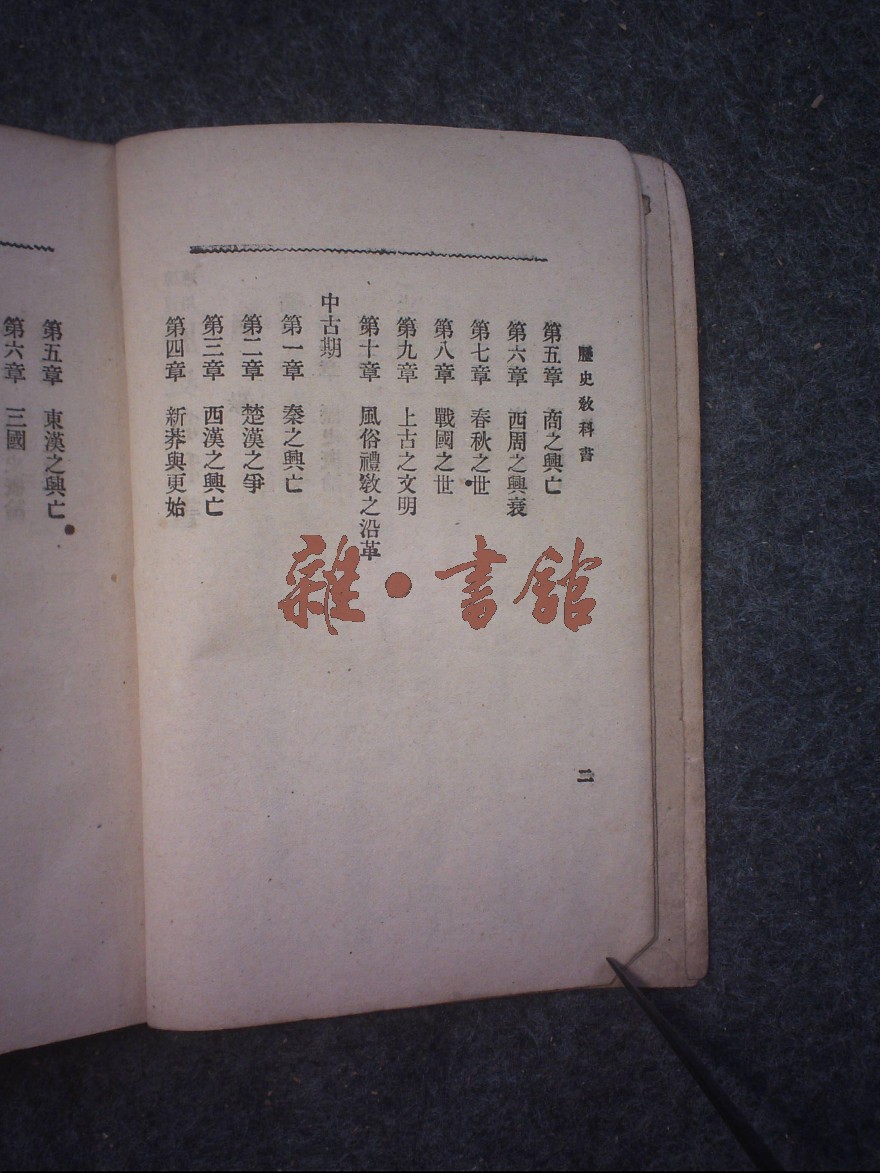 歷史敎科書
第五章　商之興亡
第六章　西周之興衰
第七章　春秋之世
第八章　戰國之世
第九章　上古之文明
第十章　風俗禮敎之沿革
中古期
第一章　秦之興亡
第二章　楚漢之爭
第三章　西漢之興亡
第四章　新莽與更始
二
第五章　東漢之興亡
第六章　三國
雜·書館